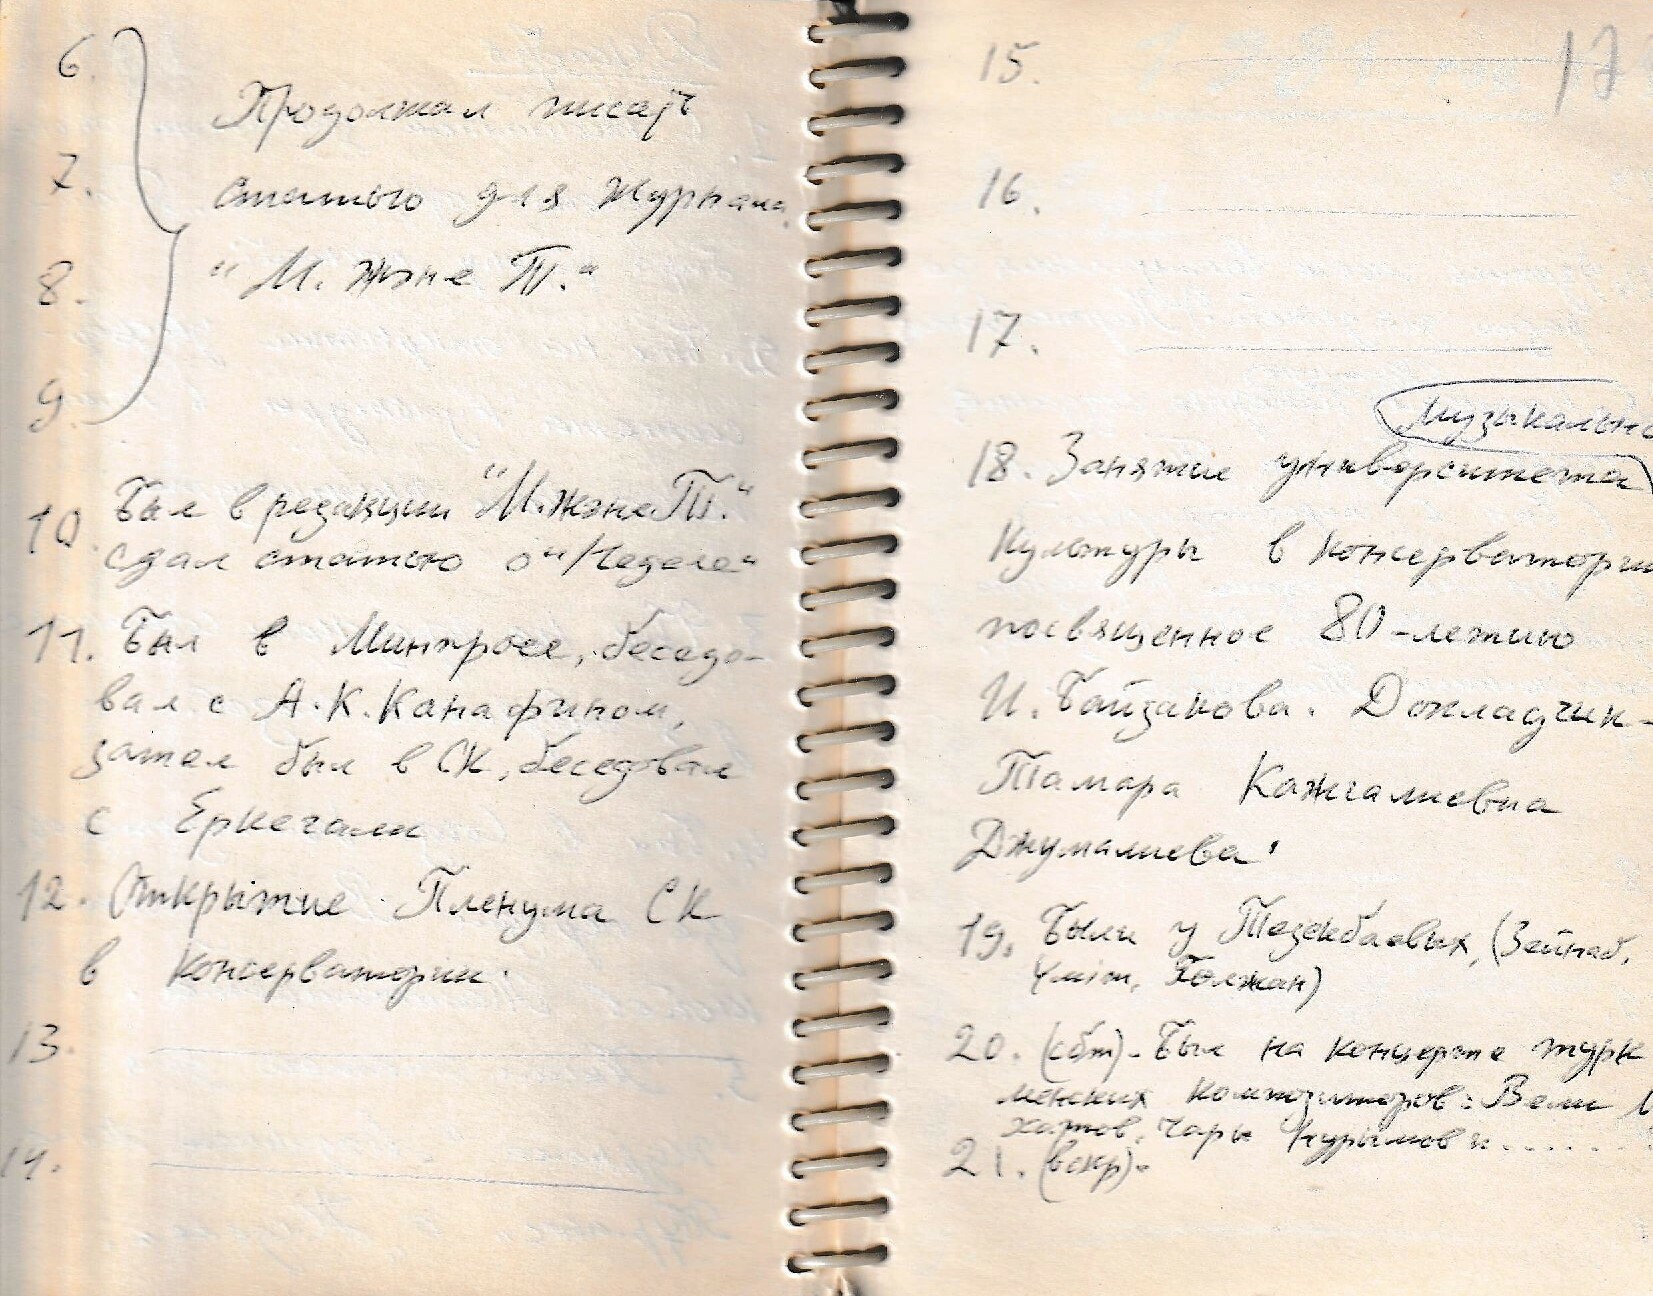 6.
Продолжал писать
7.
статью для журнала
8.
"М. және Т."
9.
10. Был в редакции "М. және Т."
сдал статью о "Неделе"
11. Был в Минпросе, беседо-
вал с А.К. Канафином,
затем был в СК, беседовал
с Еркегали
12. Открытие Пленума СК
в консерватории.
13.
14.
15.
17
16.
17.
Музыкально
18. Занятие университета
культуры в консерватории
посвященное 80-летию
И. Байзакова. Докладчик-
Тамара Кажгалиевна
Джумалиева.
19. Были у Тезекбаевых, (Зейнаб,
Үміт, Голжан)
20. (сбт). Был на концерте турк
менских композиторов: Вели
хатов, Чары Нурымов и......
21. (вскр).